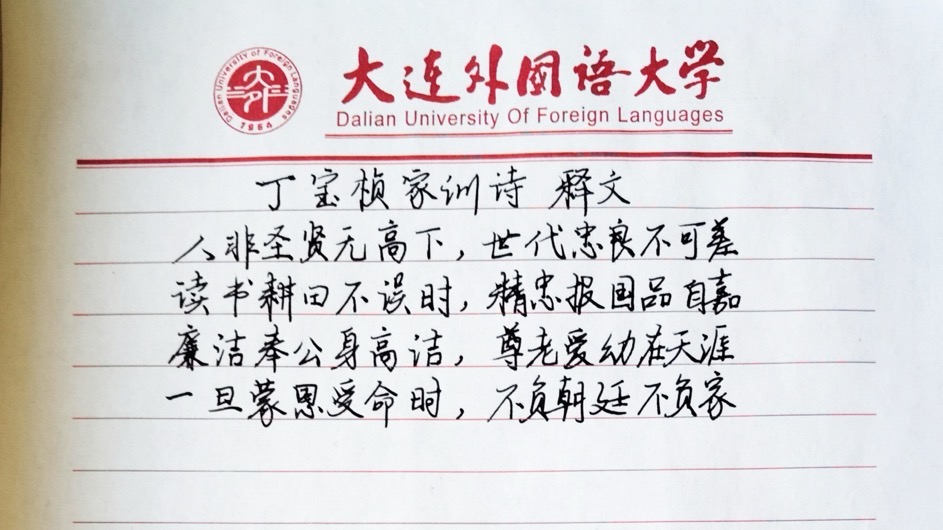 大连外国语大学
Dalian University Of Foreign Languages
Dalian University of Foreign Languages
大外
1964
丁宝桢家训诗 释文
人非圣贤无高下，世代忠良不可差
读书耕田不误时，精忠报国品自嘉
廉洁奉公身高洁，尊老爱幼在天涯
一旦蒙恩受命时，不负朝廷不负家